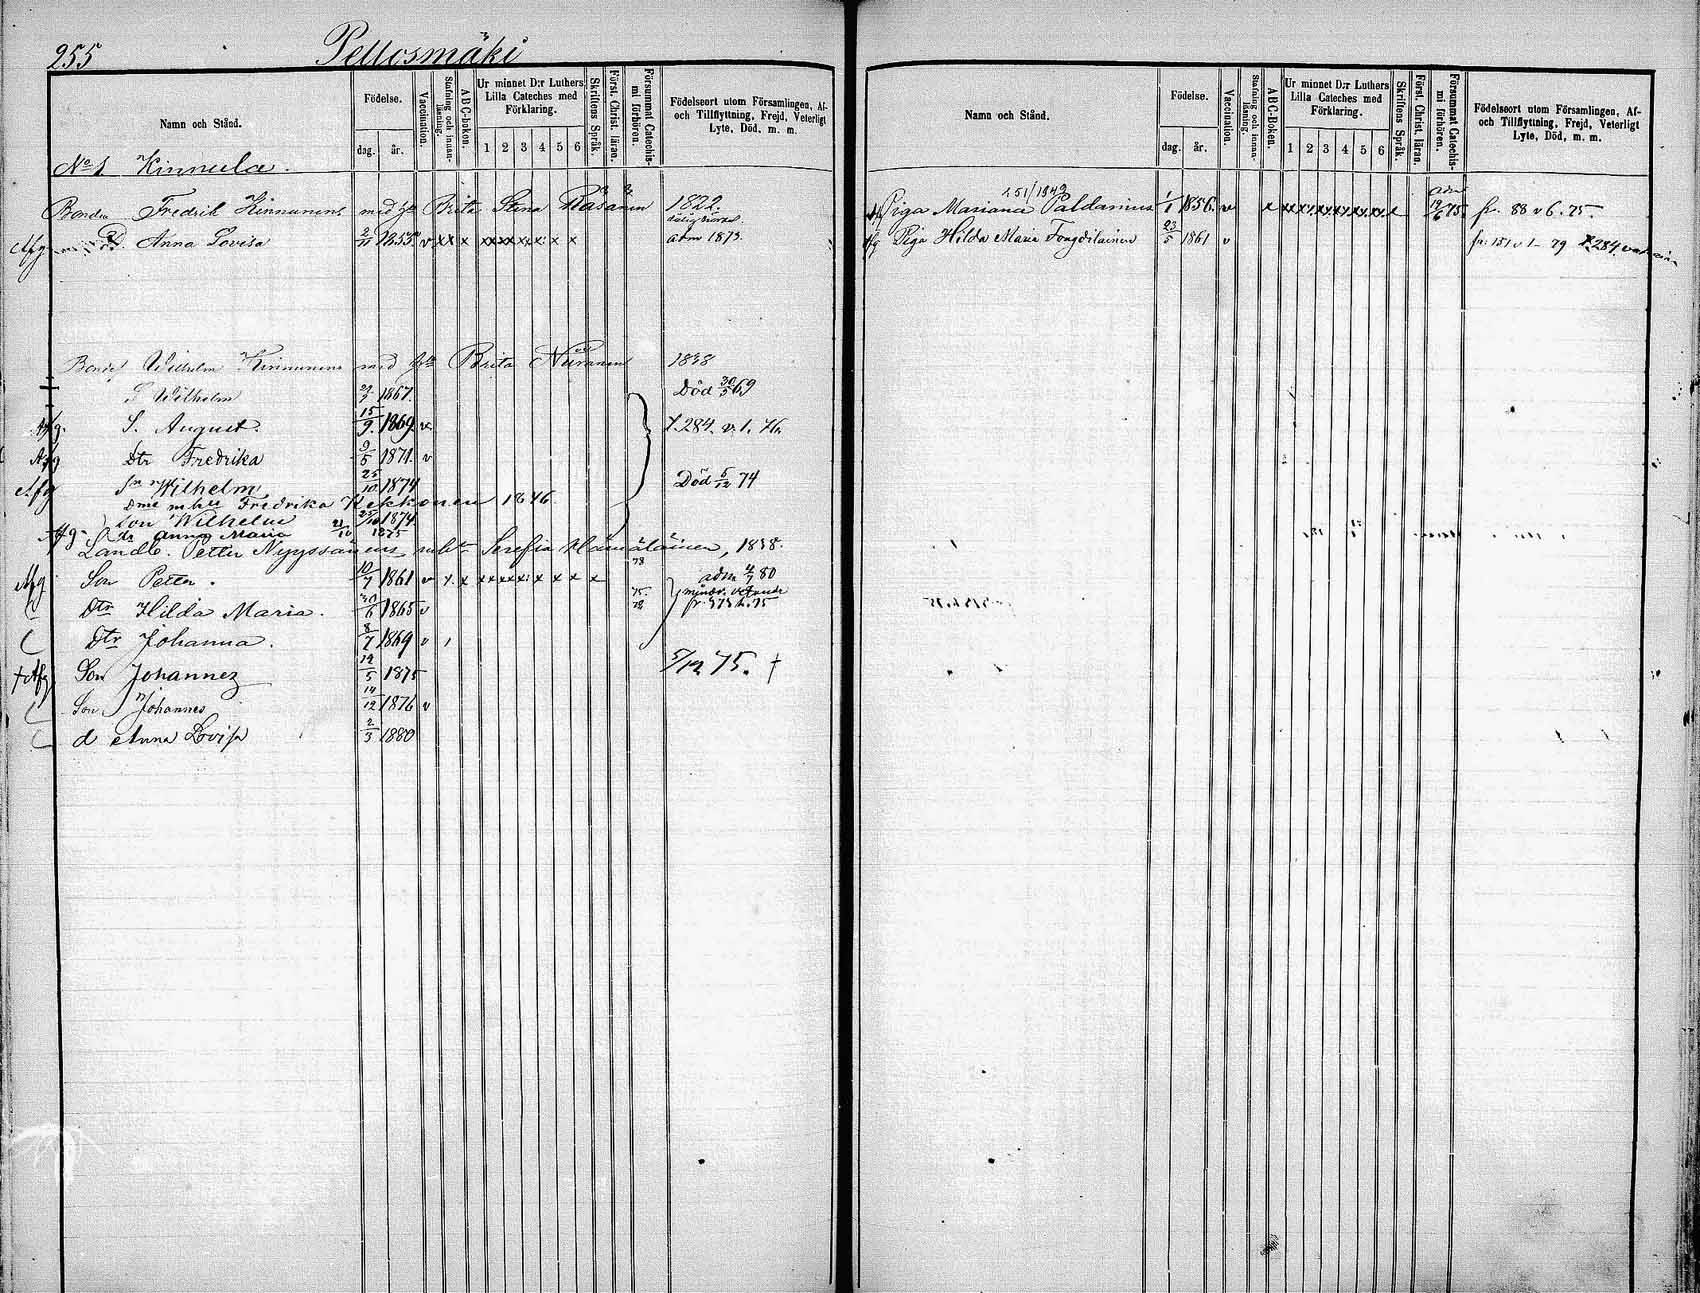 255 Peltosmäki
Namn och Stånd.
Födelse.
dag. år.
Vaccination.
Stafning och innanläsning.
A B C-boken.
Ur minnet D:r Luthers Lilla Cateches med Förklaring.
1 2 3 4 5 6
Skriftens Språk.
Först. Christ. läran.
Försummat Catechismi förhören.
Födelseort utom Församlingen, Af- och Tillflyttning, Frejd, Veterligt Lyte, Död, m. m.
No 1 Kinnula.
Bonden Fredrik Kinnunens med h Brita Stina Räsänen 1822.
Afg D. Anna Lovisa 2/11 1855 v x x x x x x x x x x adm 1873.
Bond Wilhelm Kinnunens med h Brita Niiranen 1838
† S Wilhelm 1867. Död 30/5 69
Afg. S. August. 15/9. 1869 v. 284. v. 1. 76.
Afg Dtr Fredrika 9/5 1871. v
Afg Sn Wilhelm 25/10 1874 Död 5/12 74
Fredrika Kekkonen 1846
son Wilhelm 25/10 1874
Afg. dr Anna Maria 21/10 1875
Landb. Petter Nyyssönens m h Serefia Hämäläinen, 1838.
78
Afg Son Petter. 10/7 1861 v x x x x x x x x x x x adm 4/7 80
Dtr Hilda Maria. 30/6 1865 v 75. 78
Dtr Johanna. 8/7 1869 v 1
† Afg Son Johannes 12/5 1875 5/12 75. †
Son Johannes 14/12 1876 v
d Anna Lovisa 2/3 1880
Namn och Stånd.
Födelse.
dag. år.
Vaccination.
Stafning och innanläsning.
A B C-Boken.
Ur minnet D:r Luthers Lilla Cateches med Förklaring.
1 2 3 4 5 6
Skriftens Språk.
Först. Christ. läran.
Försummat Catechismi förhören.
Födelseort utom Församlingen, Af- och Tillflyttning, Frejd, Veterligt Lyte, Död, m. m.
151/1849
Piga Mariana Paldanius 1/1 1856. v x x x x x x x x x x adm 19/6 75. fr. 88 v 6. 75.
Afg Piga Hilda Maria 23/5 1861 v fr. 151 v 1 79 284